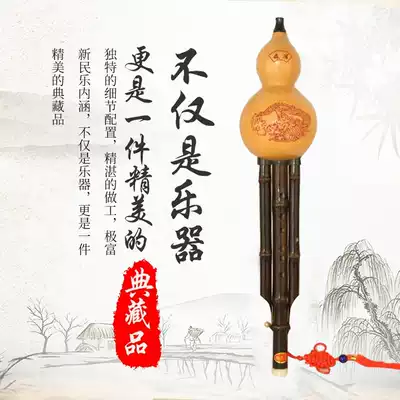 不仅是乐器
更是一件精美的
典藏品
独特的细节配置,精湛的做工,极富
新民乐内涵,不仅是乐器,更是一件
精美的典藏品